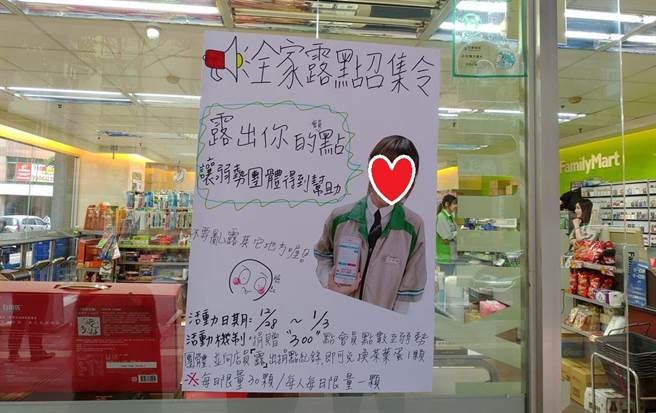 全家露點召集令
露出你的點
讓弱勢團體得到幫助
不要亂露其它地方喔!
活動日期: 12/28 ~ 1/3
活動機制: 捐贈 "300" 點會員點數至弱勢
團體 並向店員露出捐點紀錄, 即可兌換茶葉蛋1顆
※每日限量30顆/每人每日限量一顆
FamilyMart